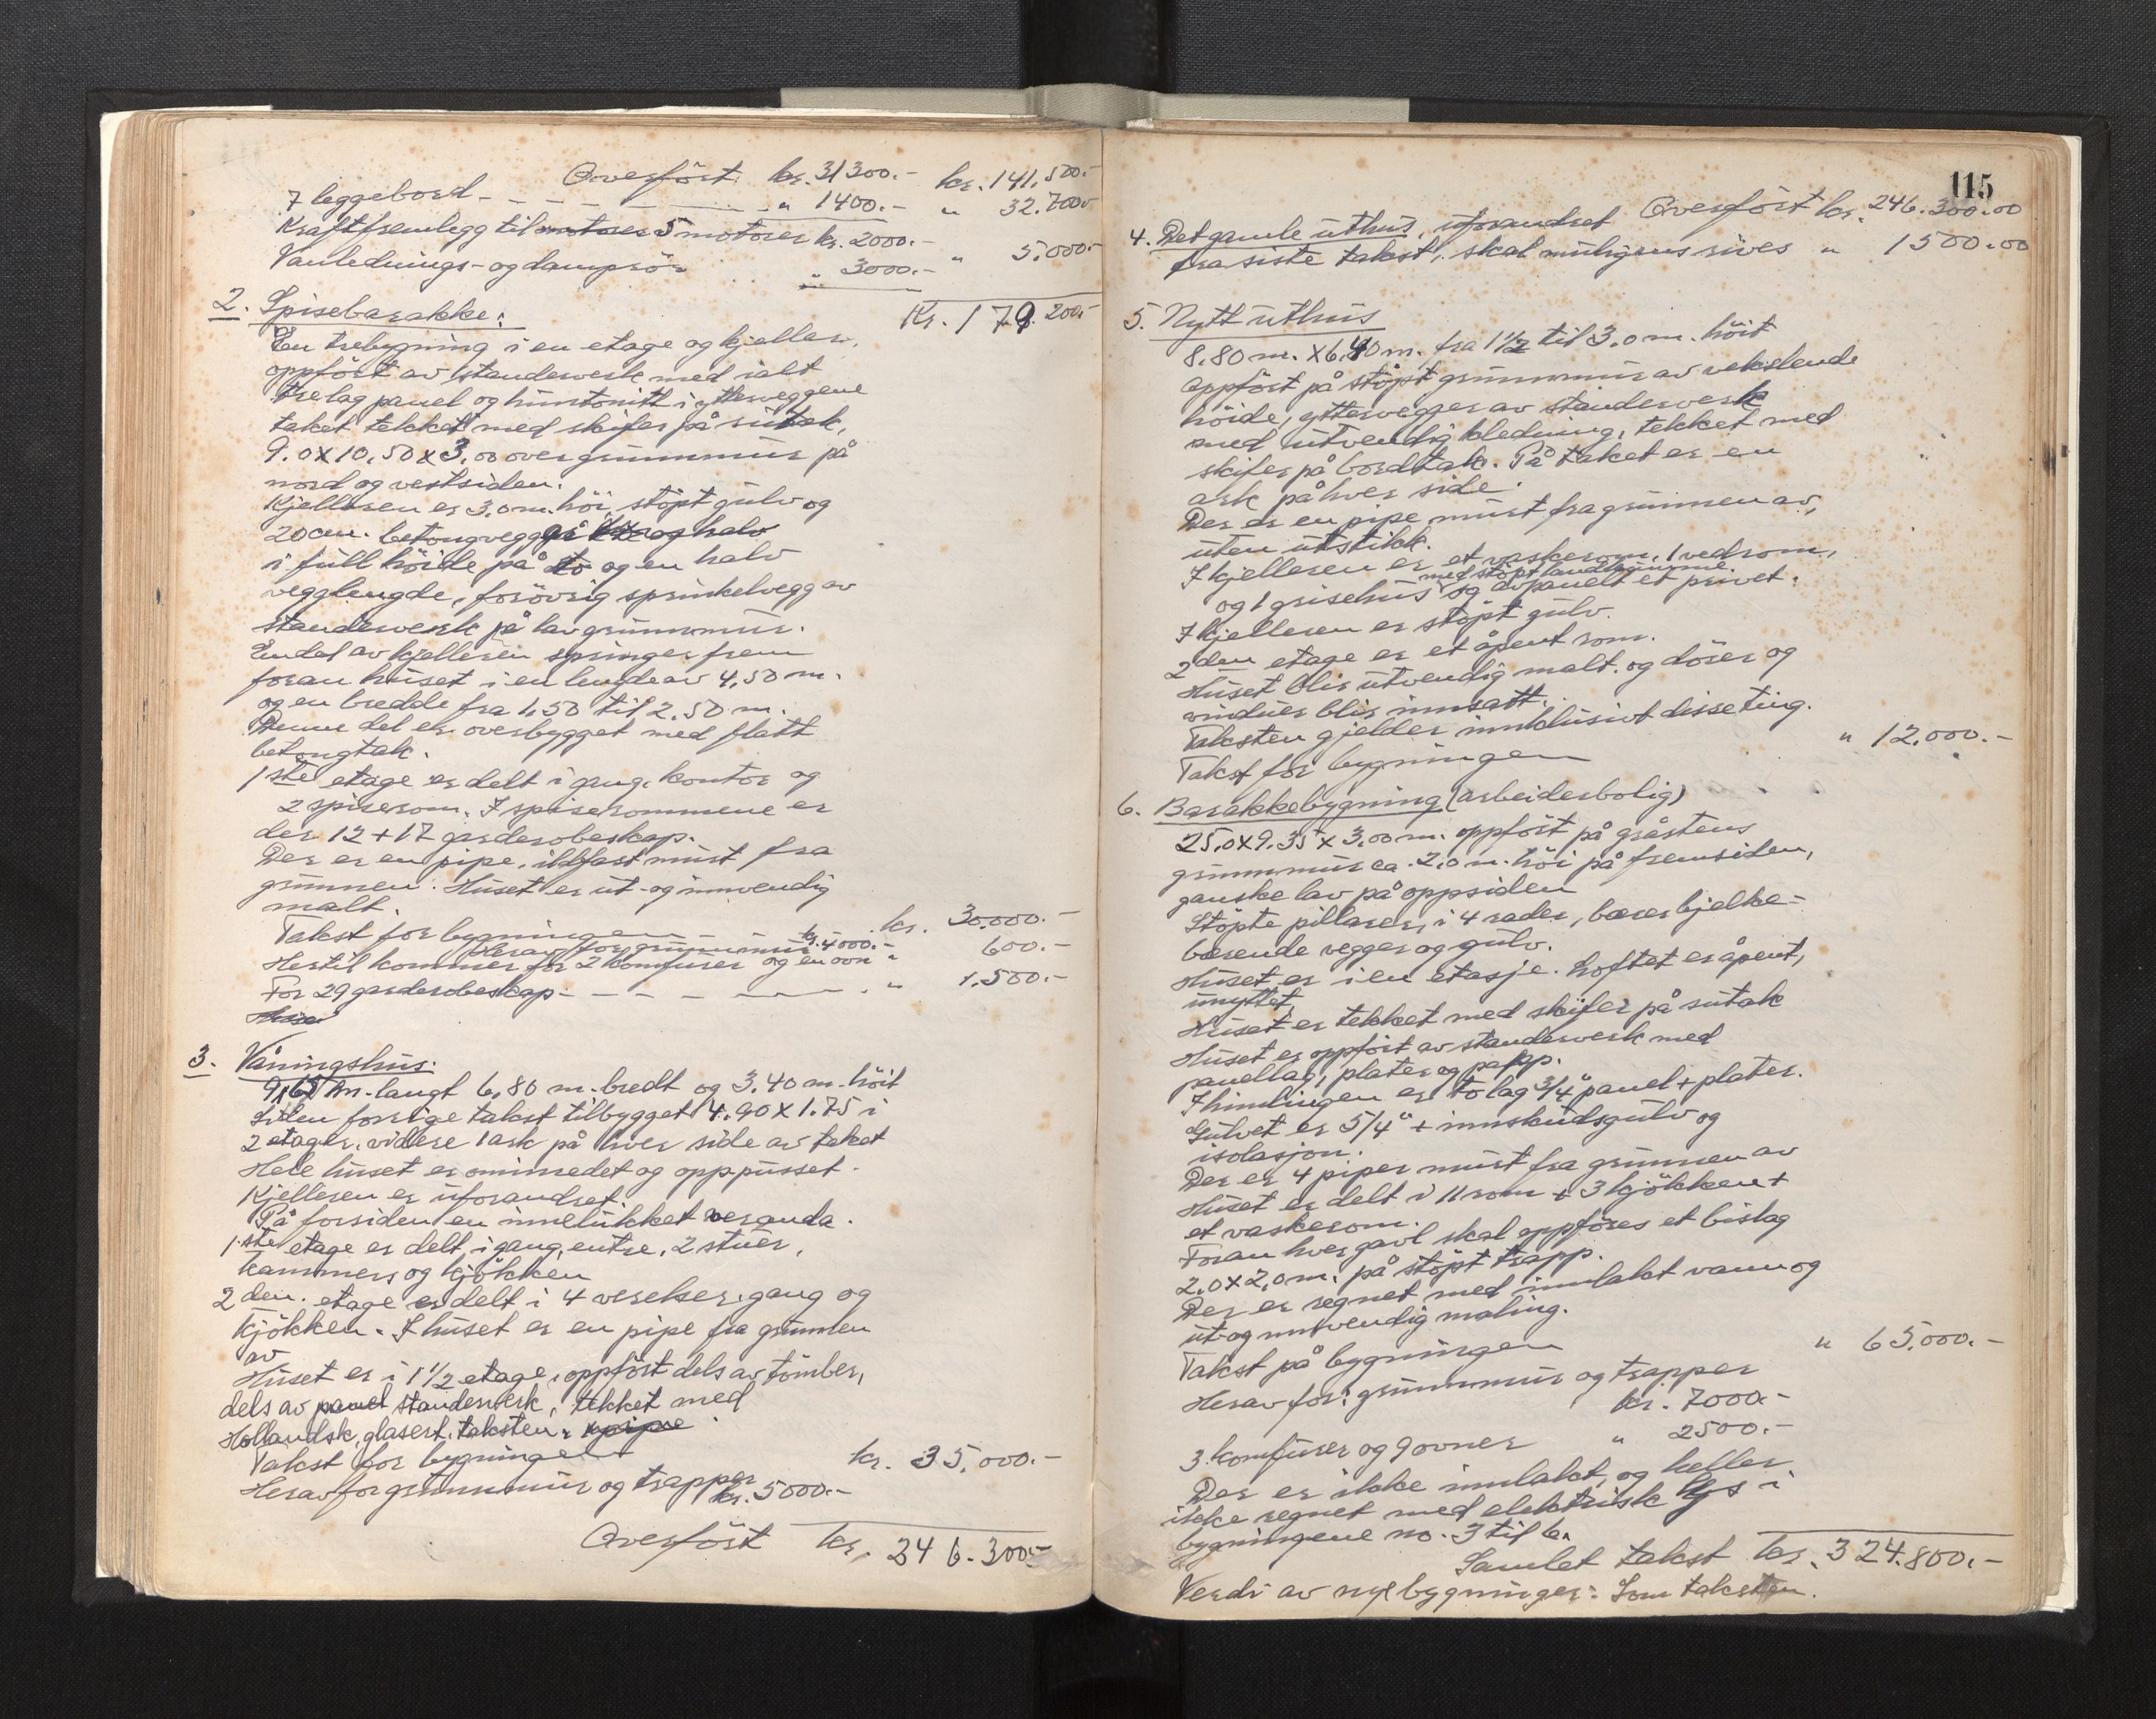 Overført kr. 31300.- kr. 141,500.-
7 leggebord - - - - - - " 1400.- " 32.700.-
Kraftfremlegg til motorer 5 motorer kr. 2000.-
Vanlednings- og damprör " 3000.- " 5.000.-
Kr. 179.200.-
2. Spisebarakke:
En trebygning i en etage og kjeller,
oppfört av standerverk med ialt
tre lag panel og huntonitt i ytterveggene
taket tekket med skifer på sutak,
9.0 x 10,50 x 3,00 over grunnmur på
nord og vestsiden.
Kjelleren er 3,0 m. høi, støpt gulv og
20 cm. betongvegger og halv
i full höide på to og en halv
vegglengde, forövrig sprinkelvegg av
standerverk på lav grunnmur.
En del av kjelleren springer frem
foran huset i en lengde av 4,50 m.
og en bredde fra 1,50 til 2,50 m.
Denne del er overbygget med flatt
betongtak.
1ste etage er delt i gang, kontor og
2 spiserom. I spiserommene er
der 12 + 17 garderobeskap.
Der er en pipe, ildfast murt fra
grunnen. Huset er ut- og innvendig
malt.
Takst for bygningen - - kr. 30.000.-
Herav for grunnmur kr. 4000.-
Hertil kommer for 2 komfurer og en ovn " 600.-
For 29 garderobeskap - - - - - " 1.500.-
Huset
3. Våningshus:
9,68 m. langt 6,80 m. bredt og 3,40 m. höit
Siden forrige takst tilbygget 4.90 x 1.75 i
2 etager, videre 1 ark på hver side av taket
Hele huset er ominnredet og opppusset.
Kjelleren er uforandret.
På forsiden en innelukket veranda.
1.ste etage er delt i gang, entre, 2 stuer,
kammers og kjökken
2 den. etage er delt i 4 værelser, gang og
kjökken. I huset er en pipe fra grunnen
av
Huset er i 1 1/2 etage, oppfört dels av tömber,
dels av panel standerverk, tekket med
Hollandsk, glasert, taksten, 1 pipe
Takst for bygningen kr. 35.000.-
Herav for grunnmur og trapper
kr. 5000.-
Overført kr. 246.300.-
115
Overfört kr. 246.300.00
4. Det gamle uthus, uforandret
fra siste takst, skal muligens rives " 1500.00
5. Nytt uthus
8.80 m. x 6,40 m. fra 1 1/2 til 3.0 m. höit
oppfört på støpt grunnmur av vekslende
höide, yttervegger av standerverk
med utvendig kledning, tekket med
skifer på bordtak. På taket er en
ark på hver side.
Der er en pipe murt fra grunnen av,
uten utstikk.
I kjelleren er et vaskerom, 1 vedrom,
med støpt landkumme
og 1 grisehus og avpanelt et privet.
I kjelleren er støpt gulv.
2den etage er et åpent rom.
Huset blir utvendig malt. og dörer og
vinduer blir innsatt.
Taksten gjelder innklusivt disse ting.
Takst for bygningen " 12.000.-
6. Barakkebygning (arbeiderbolig)
25,0 x 9.35 x 3.00 m. oppfört på gråstens
grunnmur ca. 2.0 m. höi på fremsiden,
ganske lav på oppsiden
Stöpte pillarer, i 4 rader, bærer bjelke-
bærende vegger og gulv.
Huset er i en etasje. Loftet er åpent,
unyttet.
Huset er tekket med skifer på sutak
Huset er oppfört av standerverk med
panellag, plater og papp.
I himlingen er to lag 3/4" panel + plater.
Gulvet er 5/4" + innskudsgulv og
isolasjon.
Der er 4 piper murt fra grunnen av
Huset er delt i 11 rom + 3 kjökken +
et vaskerom.
Foran hver gavl skal oppföres et bislag
2.0 x 2,0 m. på stöpt trapp.
Der er regnet med innlakt vann og
ut- og innvendig maling.
Takst på bygningen " 65.000.-
Herav for: grunnmur og trapper
kr. 7000.-
3 komfurer og 9 ovner " 2500.-
Der er ikke innlakt, og heller
ikke regnet med elektrisk lys i
bygningene no. 3 til 6.
Samlet takst kr. 324.800.-
Verdi av nye bygninger: Som taksten.